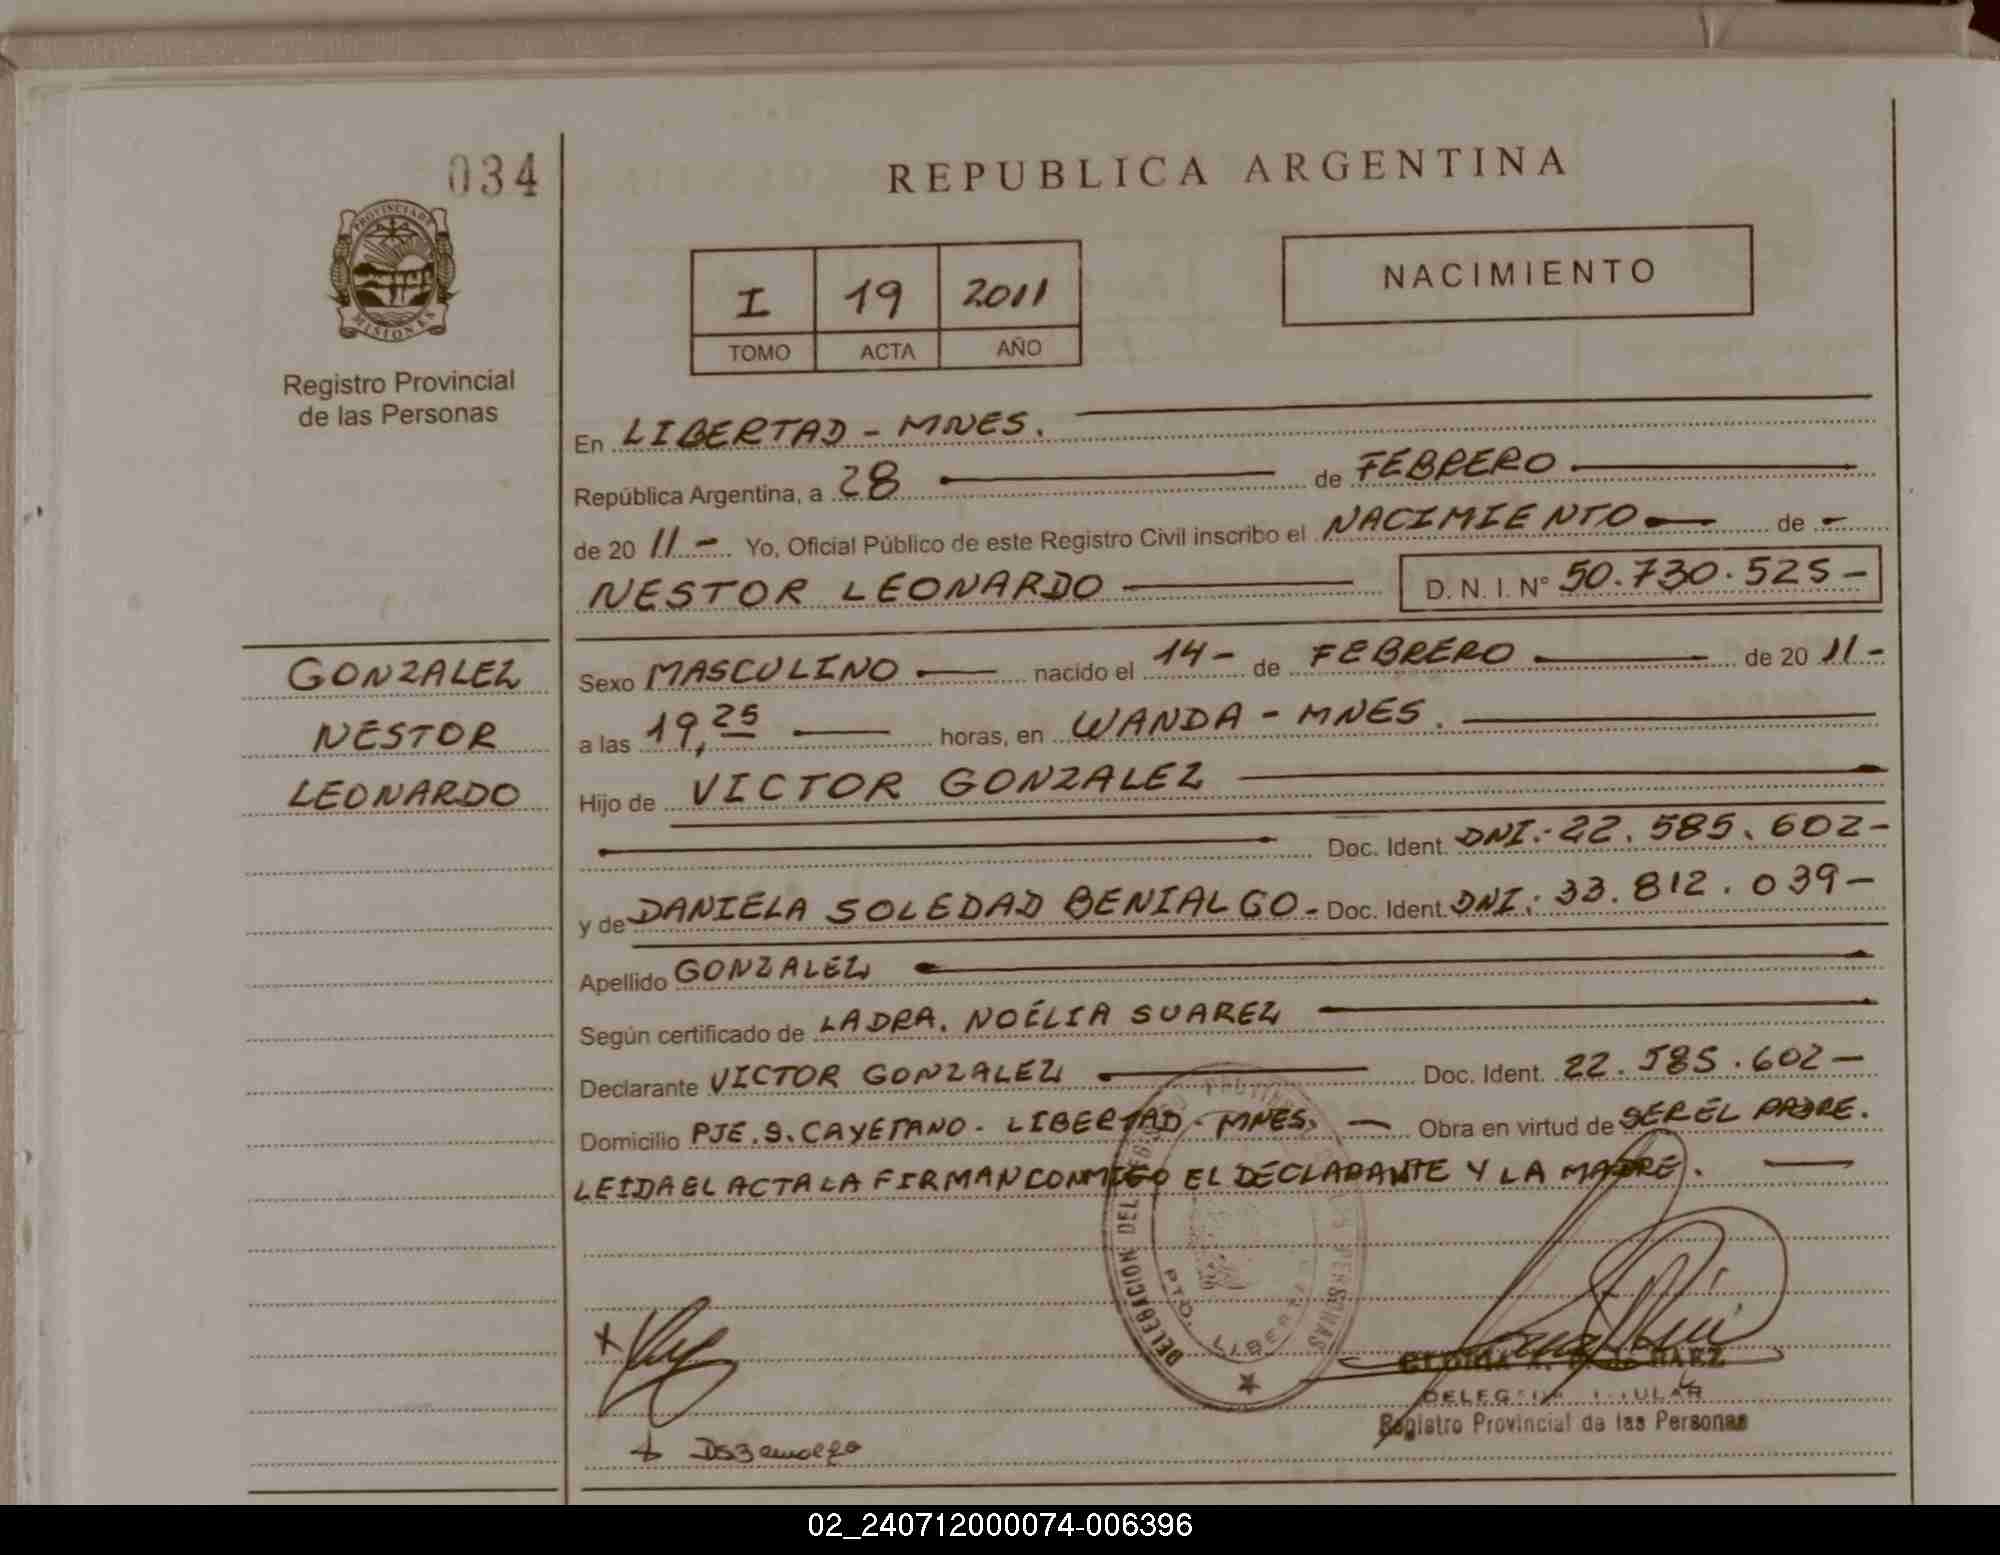 034
PROVINCIA DE
MISIONES
Registro Provincial
de las Personas
REPUBLICA ARGENTINA
I 19 2011
TOMO ACTA AÑO
NACIMIENTO
En LIBERTAD - MNES.
República Argentina, a 28 de FEBRERO
de 20 11 - Yo, Oficial Público de este Registro Civil inscribo el NACIMIENTO de -
NESTOR LEONARDO D. N. I. N° 50.730.525-
GONZALEZ
NESTOR
LEONARDO
Sexo MASCULINO nacido el 14 - de FEBRERO de 20 11 -
a las 19,25 horas, en WANDA - MNES.
Hijo de VICTOR GONZALEZ
Doc. Ident. DNI.- 22.585.602-
y de DANIELA SOLEDAD BENIALGO - Doc. Ident. DNI: 33.812.039-
Apellido GONZALEZ
Según certificado de LA DRA. NOELIA SUAREZ
Declarante VICTOR GONZALEZ Doc. Ident. 22.585.602-
Domicilio PJE. S. CAYETANO - LIBERTAD - MNES. - Obra en virtud de SER EL PADRE.
LEIDA EL ACTA LA FIRMAN CONMIGO EL DECLARANTE Y LA MADRE.
DELEGACION DEL
PERSONAS
PTO. LIBERTAD
DELEGADA TITULAR
Registro Provincial de las Personas
02_240712000074-006396